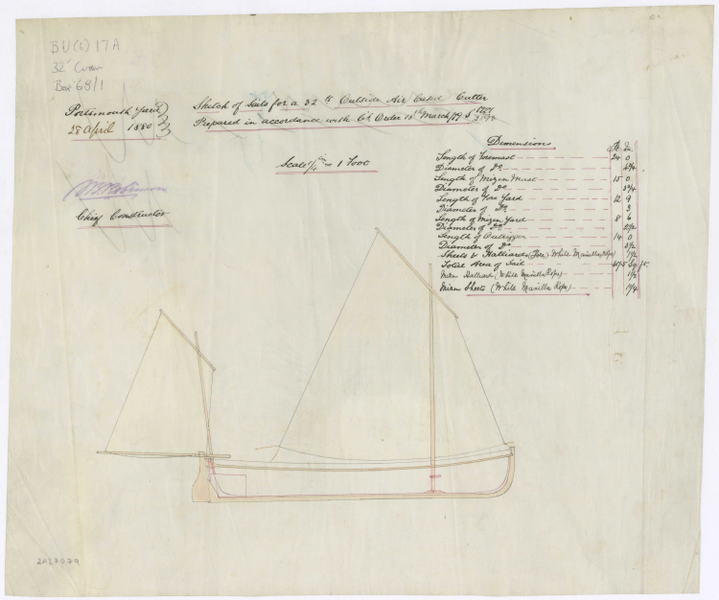 BU(6) 17A
32' Cutter
Box 68/1
Portsmouth Yard
28 April 1880
Chief Constructor
Sketch of Sails for a 32 ft Outside Air Cased Cutter
Prepared in accordance with Cl. Order 18th March/79 S
Scale 1/4 in = 1 Foot
Dimensions
Ft In
Length of Foremast 24 0
Diameter of Do
Length of Mizen Mast 15 0
Diameter of Do 3 3/4
Length of Fore Yard 12 9
Diameter of Do 3
Length of Mizen Yard 8 6
Diameter of Do 2 1/2
Length of Outrigger 14 0
Diameter of Do 3 1/2
Sheets & Halliards (Fore) White Manilla Rope 1 1/2
Total Area of Sail
Mizn Halliard (White Manilla Rope) 1 1/2
Mizn Sheets (White Manilla Rope) 1 1/4
2A27079